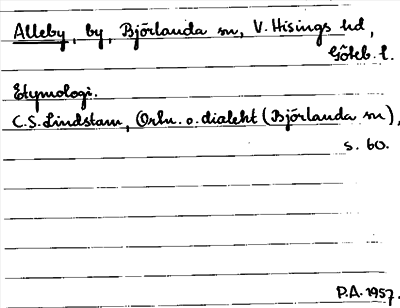 Alleby, by, Björlanda sn, V. Hisings hd,
Göteb. l.
Etymologi.
C.S. Lindstam, Ortn. o. dialekt (Björlanda sn),
s. 60.
P.A. 1957.